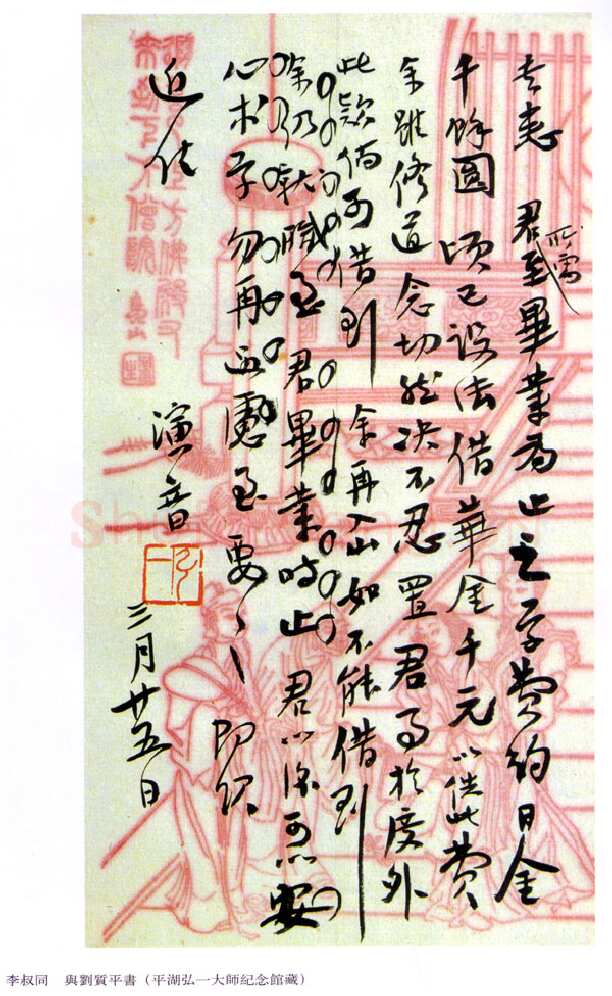 書悉 君所需至畢業為止之學費約日金
千餘圓 頃已設法借華金千元以供此費
余雖修道念切然決不忍置君事於度外
此款倘可借到 余再入山如不能借到
余仍就職至君畢業時止 君以後可以安
心求學勿再過慮至要〻 即頌
近佳
演音
三月廿五日
李叔同 與劉質平書(平湖弘一大師紀念館藏)